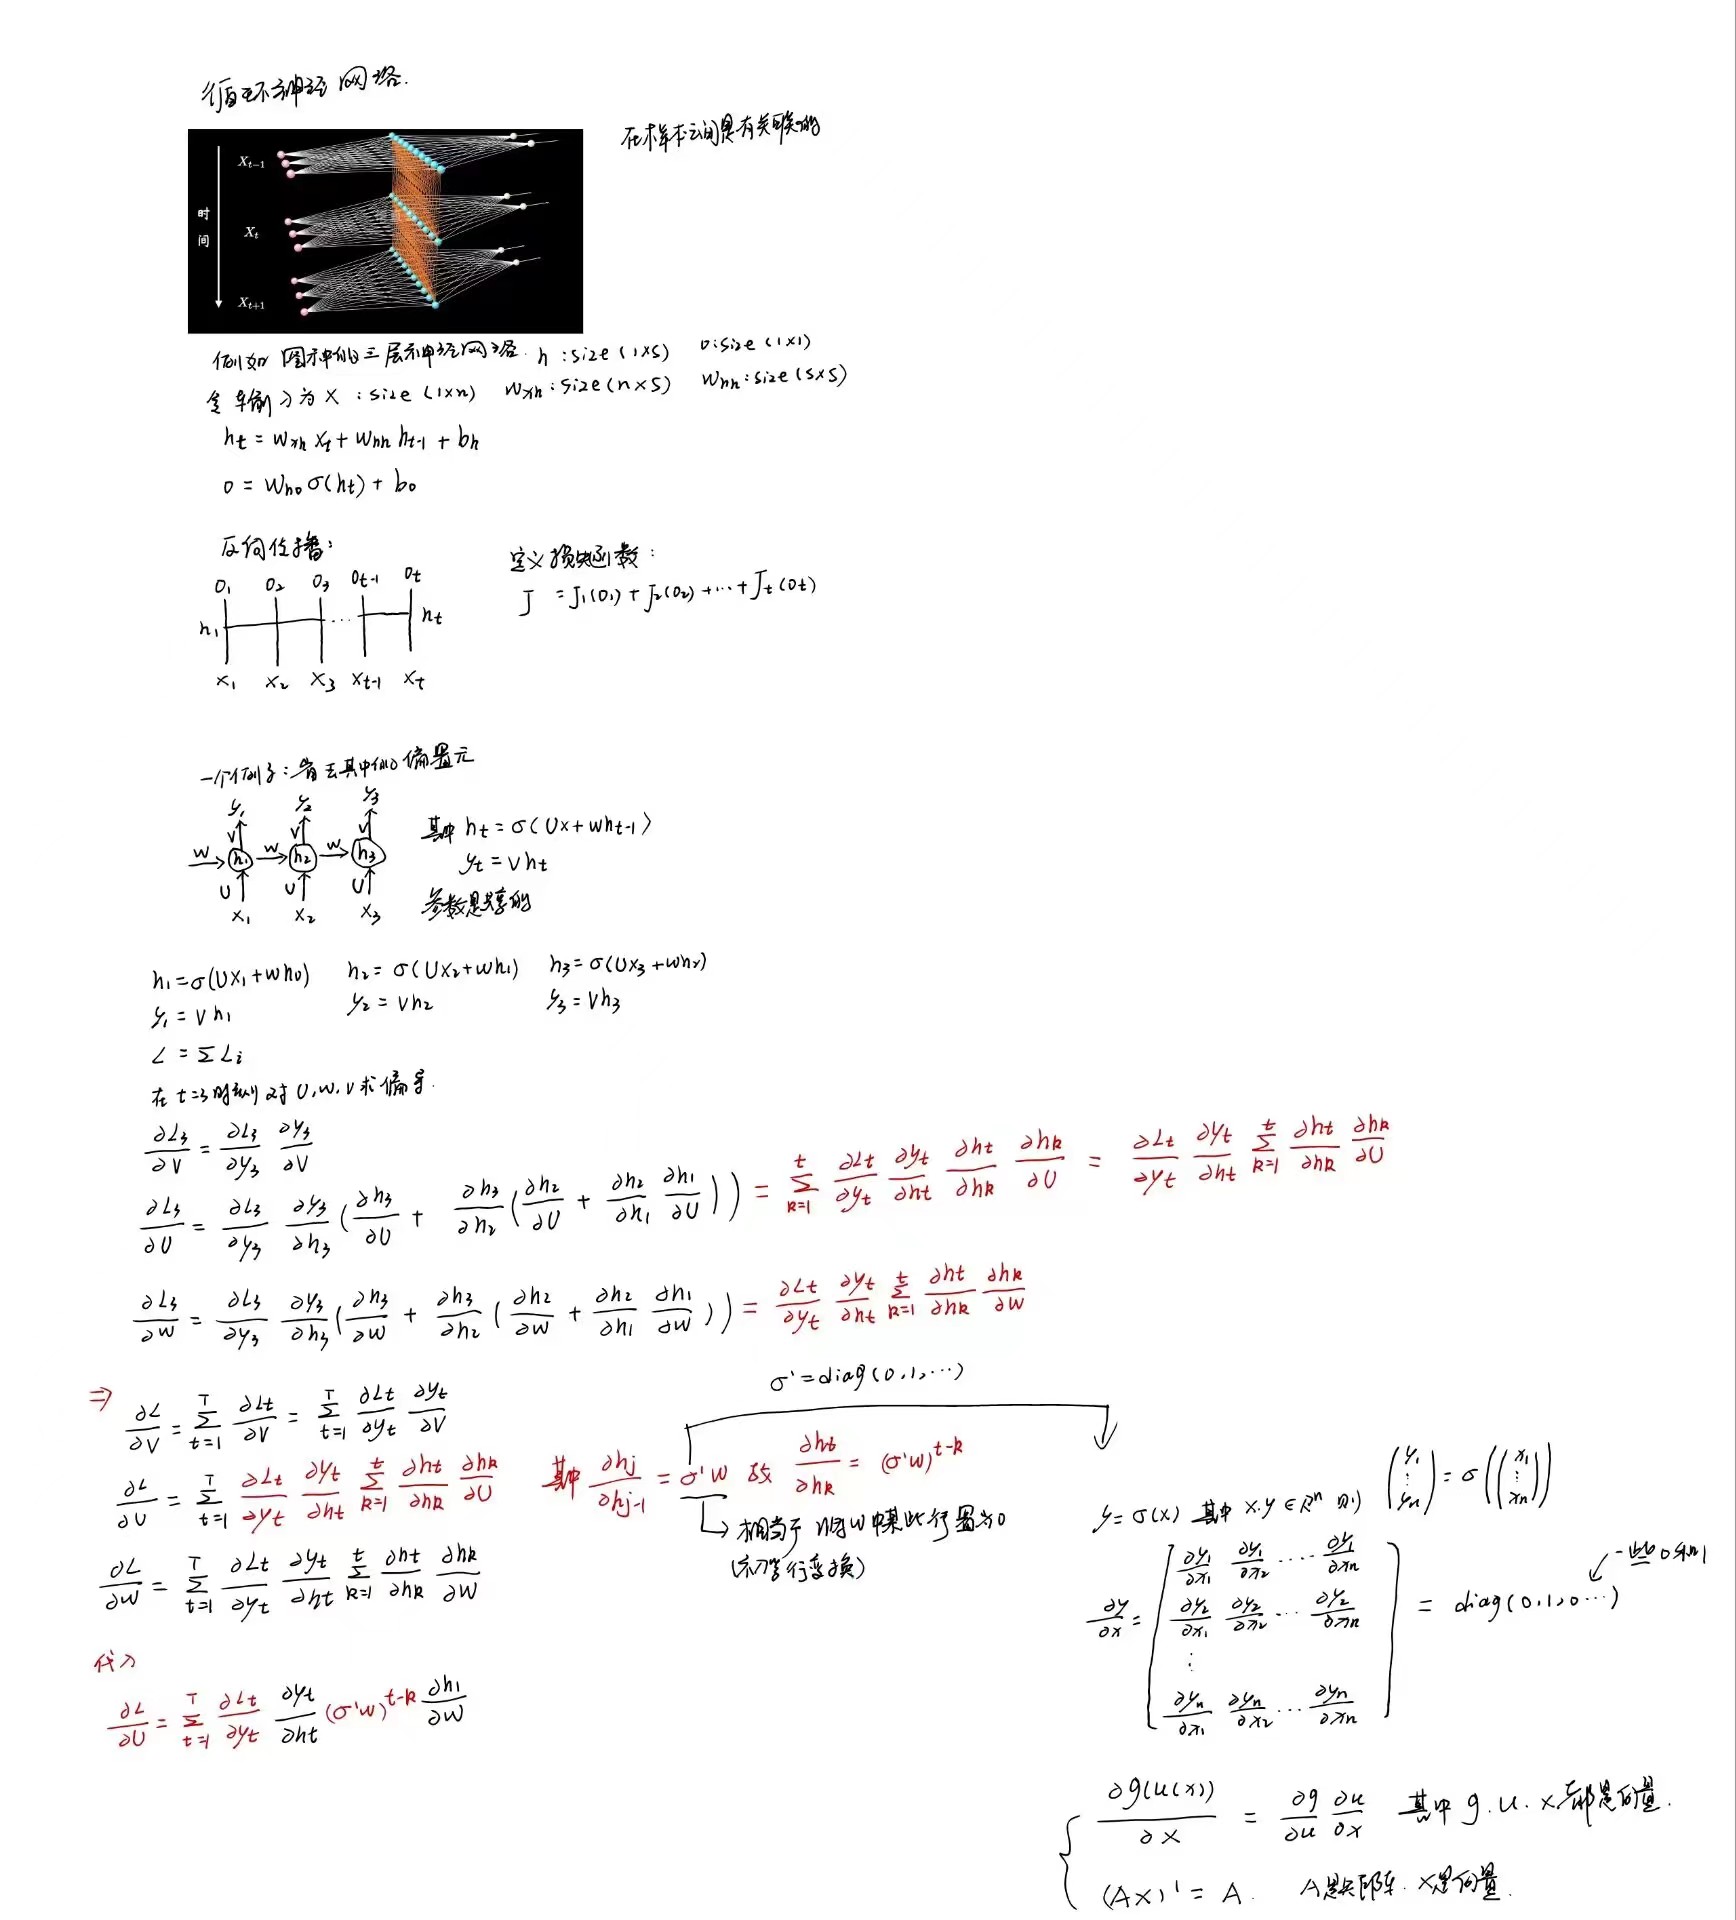 循环神经网络.
在样本之间具有关联的
时间
X_{t-1}
X_t
X_{t+1}
例如 图神的三层神经网络. h : size (1×s) o : size (1×1)
含 输入为 X : size (1×n) W_{xh} : size (n×s) W_{hh} : size (s×s)
h_t = W_{xh} x_t + W_{hh} h_{t-1} + b_h
o = W_{ho} σ(h_t) + b_o
反向传播:
定义损失函数:
O_1 O_2 O_3 O_{t-1} O_t
J = J_1(O_1) + J_2(O_2) + ... + J_t(O_t)
h_1 ... h_t
x_1 x_2 x_3 x_{t-1} x_t
一个例子: 省去其中的偏置元
y_1 y_2 y_3
V V V
其中 h_t = σ(Ux + Wh_{t-1})
W h_1 W h_2 W h_3
y_t = Vh_t
U U U
x_1 x_2 x_3
参数是共享的
h_1 = σ(Ux_1 + Wh_0) h_2 = σ(Ux_2 + Wh_1) h_3 = σ(Ux_3 + Wh_2)
y_1 = Vh_1 y_2 = Vh_2 y_3 = Vh_3
L = Σ L_i
在 t=3 时刻对 U, W, V 求偏导.
∂L_3/∂V = ∂L_3/∂y_3 ∂y_3/∂V
∂L_3/∂U = ∂L_3/∂y_3 ∂y_3/∂h_3 (∂h_3/∂U + ∂h_3/∂h_2 (∂h_2/∂U + ∂h_2/∂h_1 ∂h_1/∂U)) = Σ_{k=1}^{t} ∂L_t/∂y_t ∂y_t/∂h_t ∂h_t/∂h_k ∂h_k/∂U = ∂L_t/∂y_t ∂y_t/∂h_t Σ_{k=1}^{t} ∂h_t/∂h_k ∂h_k/∂U
∂L_3/∂W = ∂L_3/∂y_3 ∂y_3/∂h_3 (∂h_3/∂W + ∂h_3/∂h_2 (∂h_2/∂W + ∂h_2/∂h_1 ∂h_1/∂W)) = ∂L_t/∂y_t ∂y_t/∂h_t Σ_{k=1}^{t} ∂h_t/∂h_k ∂h_k/∂W
σ' = diag(0, 1, ...)
⇒ ∂L/∂V = Σ_{t=1}^{T} ∂L_t/∂V = Σ_{t=1}^{T} ∂L_t/∂y_t ∂y_t/∂V
∂L/∂U = Σ_{t=1}^{T} ∂L_t/∂y_t ∂y_t/∂h_t Σ_{k=1}^{t} ∂h_t/∂h_k ∂h_k/∂U 其中 ∂h_j/∂h_{j-1} = σ'W 故 ∂h_t/∂h_k = (σ'W)^{t-k}
→ 相当于 将W中某些行置为0
(初等行变换)
∂L/∂W = Σ_{t=1}^{T} ∂L_t/∂y_t ∂y_t/∂h_t Σ_{k=1}^{t} ∂h_t/∂h_k ∂h_k/∂W
代入
∂L/∂U = Σ_{t=1}^{T} ∂L_t/∂y_t ∂y_t/∂h_t (σ'W)^{t-k} ∂h_1/∂W
y = σ(x) 其中 x.y ∈ R^n 则 (y_1 ⋮ y_n) = σ((x_1 ⋮ x_n))
一些0和1
∂y/∂x = [∂y_1/∂x_1 ∂y_1/∂x_2 ... ∂y_1/∂x_n
∂y_2/∂x_1 ∂y_2/∂x_2 ... ∂y_2/∂x_n
⋮
∂y_n/∂x_1 ∂y_n/∂x_2 ... ∂y_n/∂x_n] = diag(0, 1, 0 ...)
∂g(u(x))/∂x = ∂g/∂u ∂u/∂x 其中 g. u. x 都是向量.
(Ax)' = A. A是矩阵. x是向量.